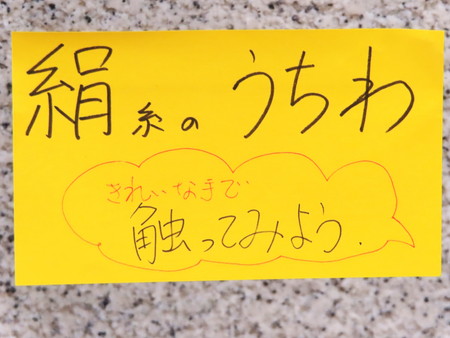 絹糸のうちわ
きれいな手で
触ってみよう.